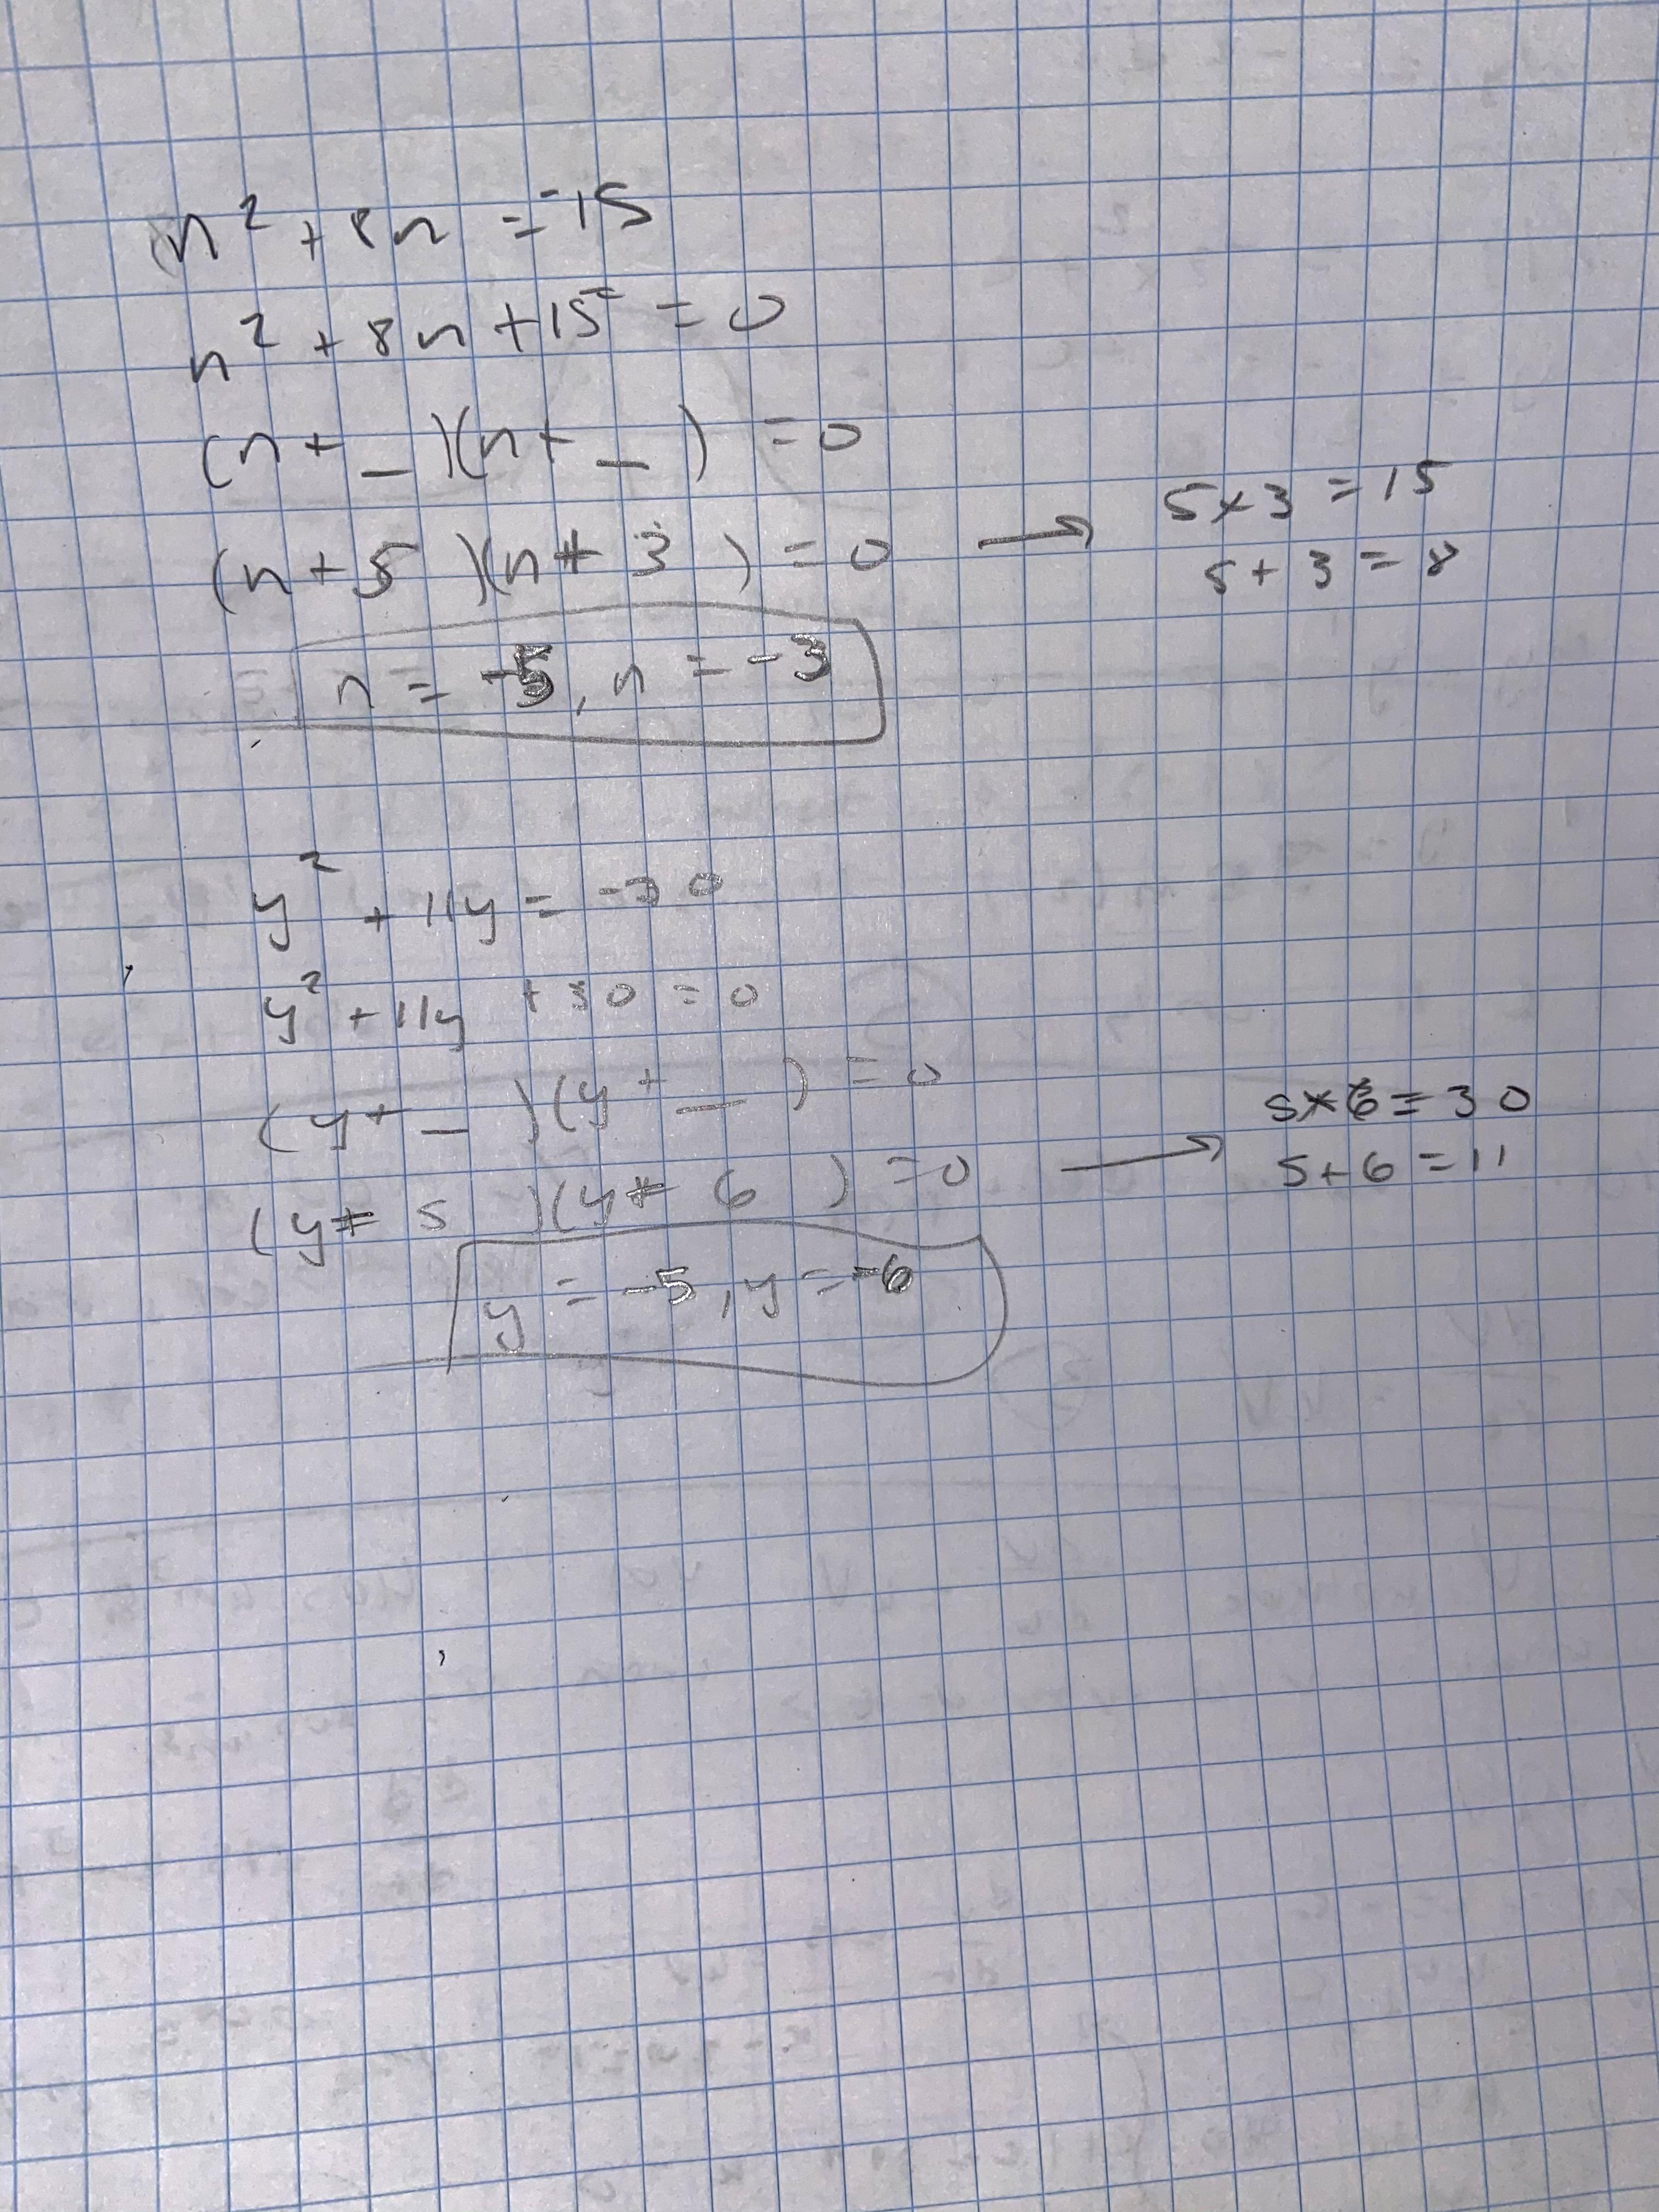 n² + 8n = -15
n² + 8n + 15 = 0
(n + _ )(n + _ ) = 0
(n + 5 )(n + 3 ) = 0 → 5 × 3 = 15
5 + 3 = 8
n = -5, n = -3
y² + 11y = -30
y² + 11y + 30 = 0
(y + _ )(y + _ ) = 0
(y + 5 )(y + 6 ) = 0 → 5 × 6 = 30
5 + 6 = 11
y = -5, y = -6